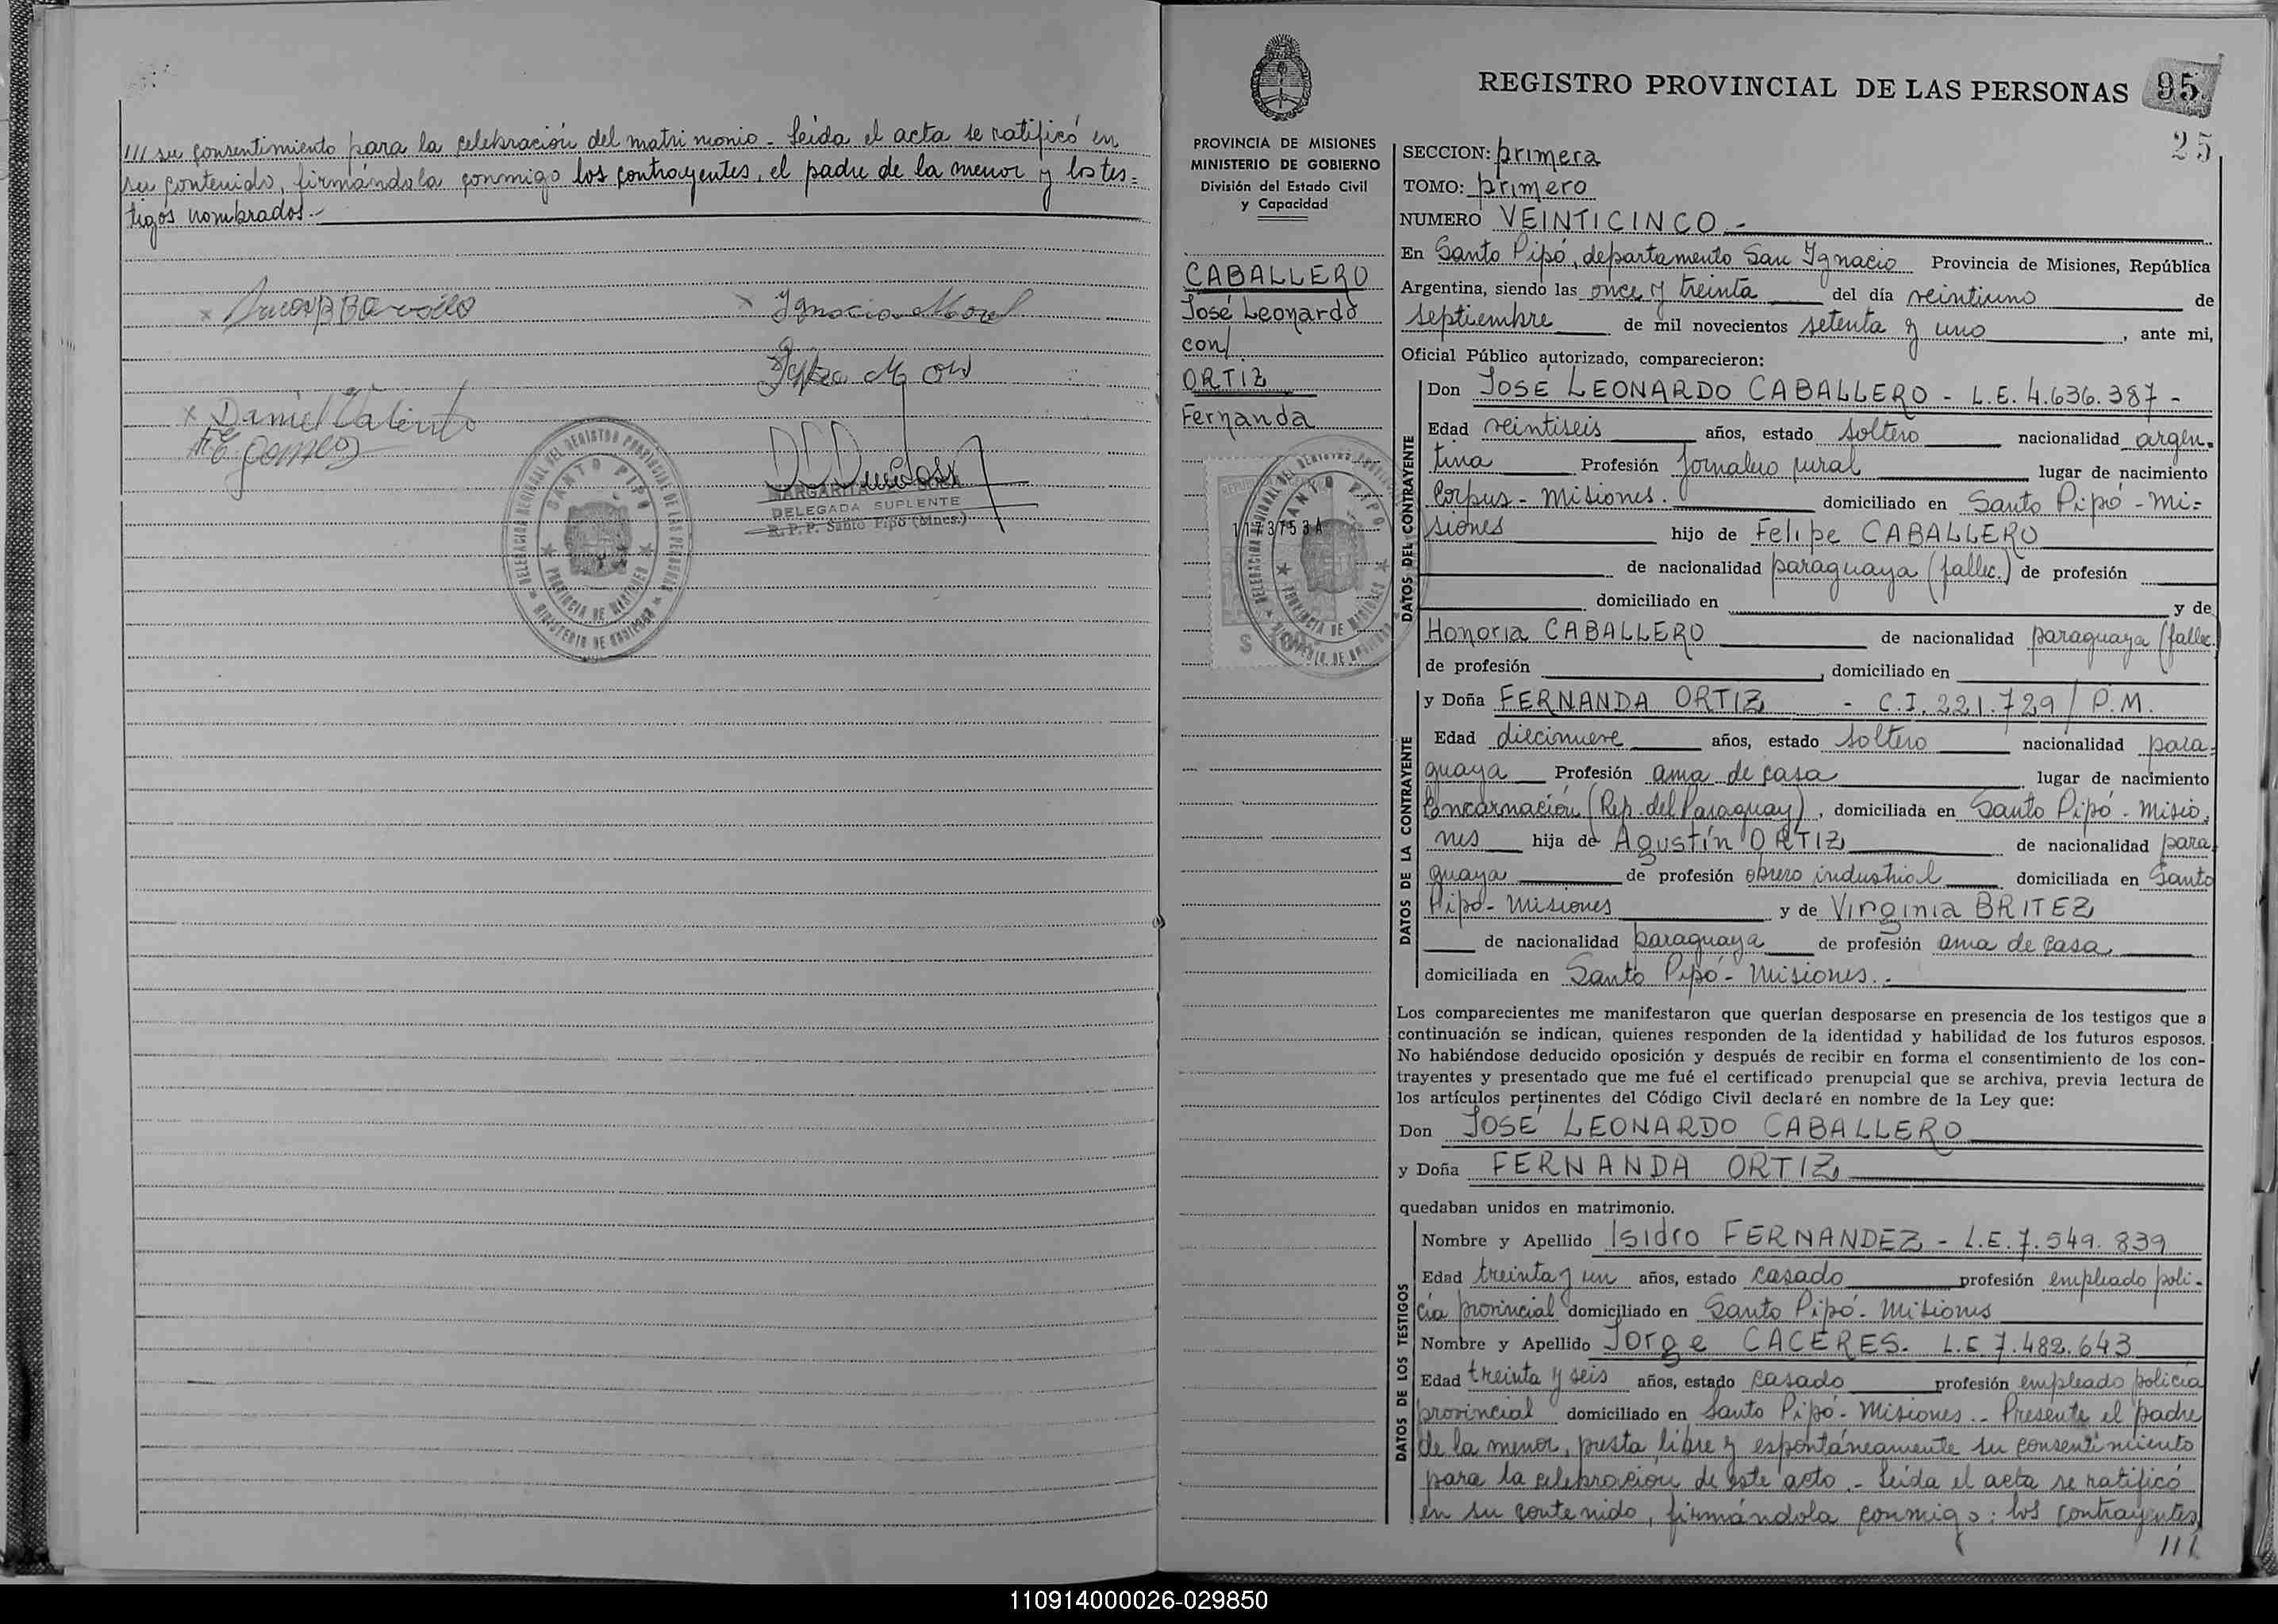 /// su consentimiento para la celebración del matrimonio - Leída el acta se ratificó en
su contenido, firmándola conmigo los contrayentes, el padre de la menor y los tes=
tigos nombrados.-
Daniel
DELEGADA SUPLENTE
R.P.P. Santo Pipó (Mnes.)
DELEGACION REGIONAL DEL REGISTRO PROVINCIAL DE LAS PERSONAS
SANTO PIPO
PROVINCIA DE MISIONES
MINISTERIO DE GOBIERNO
REGISTRO PROVINCIAL DE LAS PERSONAS 95
25
PROVINCIA DE MISIONES
MINISTERIO DE GOBIERNO
División del Estado Civil
y Capacidad
CABALLERO
José Leonardo
con/
ORTIZ
Fernanda
SECCION: primera
TOMO: primero
NUMERO VEINTICINCO.-
En Santo Pipó, departamento San Ignacio Provincia de Misiones, República
Argentina, siendo las once y treinta del día veintiuno de
septiembre de mil novecientos setenta y uno, ante mi,
Oficial Público autorizado, comparecieron:
DATOS DEL CONTRAYENTE
Don JOSÉ LEONARDO CABALLERO - L.E. 4.636.387 -
Edad veintiseis años, estado soltero nacionalidad argen=
tina Profesión Jornalero rural lugar de nacimiento
Corpus - Misiones. domiciliado en Santo Pipó - Mi=
siones hijo de Felipe CABALLERO
de nacionalidad paraguaya (fallec.) de profesión
domiciliado en y de
Honoria CABALLERO de nacionalidad paraguaya (fallec.)
de profesión , domiciliado en
DATOS DE LA CONTRAYENTE
y Doña FERNANDA ORTIZ - C.I. 221.729/P.M.
Edad diecinueve años, estado soltero nacionalidad para=
guaya Profesión ama de casa lugar de nacimiento
Encarnación (Rep. del Paraguay), domiciliada en Santo Pipó - Misio=
nes hija de Agustín ORTIZ de nacionalidad para=
guaya de profesión obrero industrial domiciliada en Santo
Pipó - Misiones y de Virginia BRITEZ
de nacionalidad paraguaya de profesión ama de casa
domiciliada en Santo Pipó - Misiones.-
Los comparecientes me manifestaron que querían desposarse en presencia de los testigos que a
continuación se indican, quienes responden de la identidad y habilidad de los futuros esposos.
No habiéndose deducido oposición y después de recibir en forma el consentimiento de los con-
trayentes y presentado que me fué el certificado prenupcial que se archiva, previa lectura de
los artículos pertinentes del Código Civil declaré en nombre de la Ley que:
Don JOSÉ LEONARDO CABALLERO
y Doña FERNANDA ORTIZ
quedaban unidos en matrimonio.
DATOS DE LOS TESTIGOS
Nombre y Apellido Isidro FERNANDEZ - L.E. 7.549.839
Edad treinta y un años, estado casado profesión empleado poli=
cía provincial domiciliado en Santo Pipó - Misiones
Nombre y Apellido Jorge CACERES. L.E 7.482.643
Edad treinta y seis años, estado casado profesión empleado policía
provincial domiciliado en Santo Pipó - Misiones.- Presente el padre
de la menor, presta libre y espontáneamente su consentimiento
para la celebración de este acto.- Leída el acta se ratificó
en su contenido, firmándola conmigo: los contrayentes
///
110914000026-029850